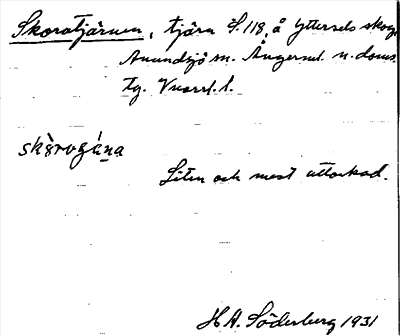 Skoratjärnen, tjärn S. 118, å Yttersels skog,
Anundsjö sn. Ångerml. n. doms.
tg. Vnorrl. l.
skò̀rogáṇa
Liten och mest uttorkad.
H. A. Söderberg 1931